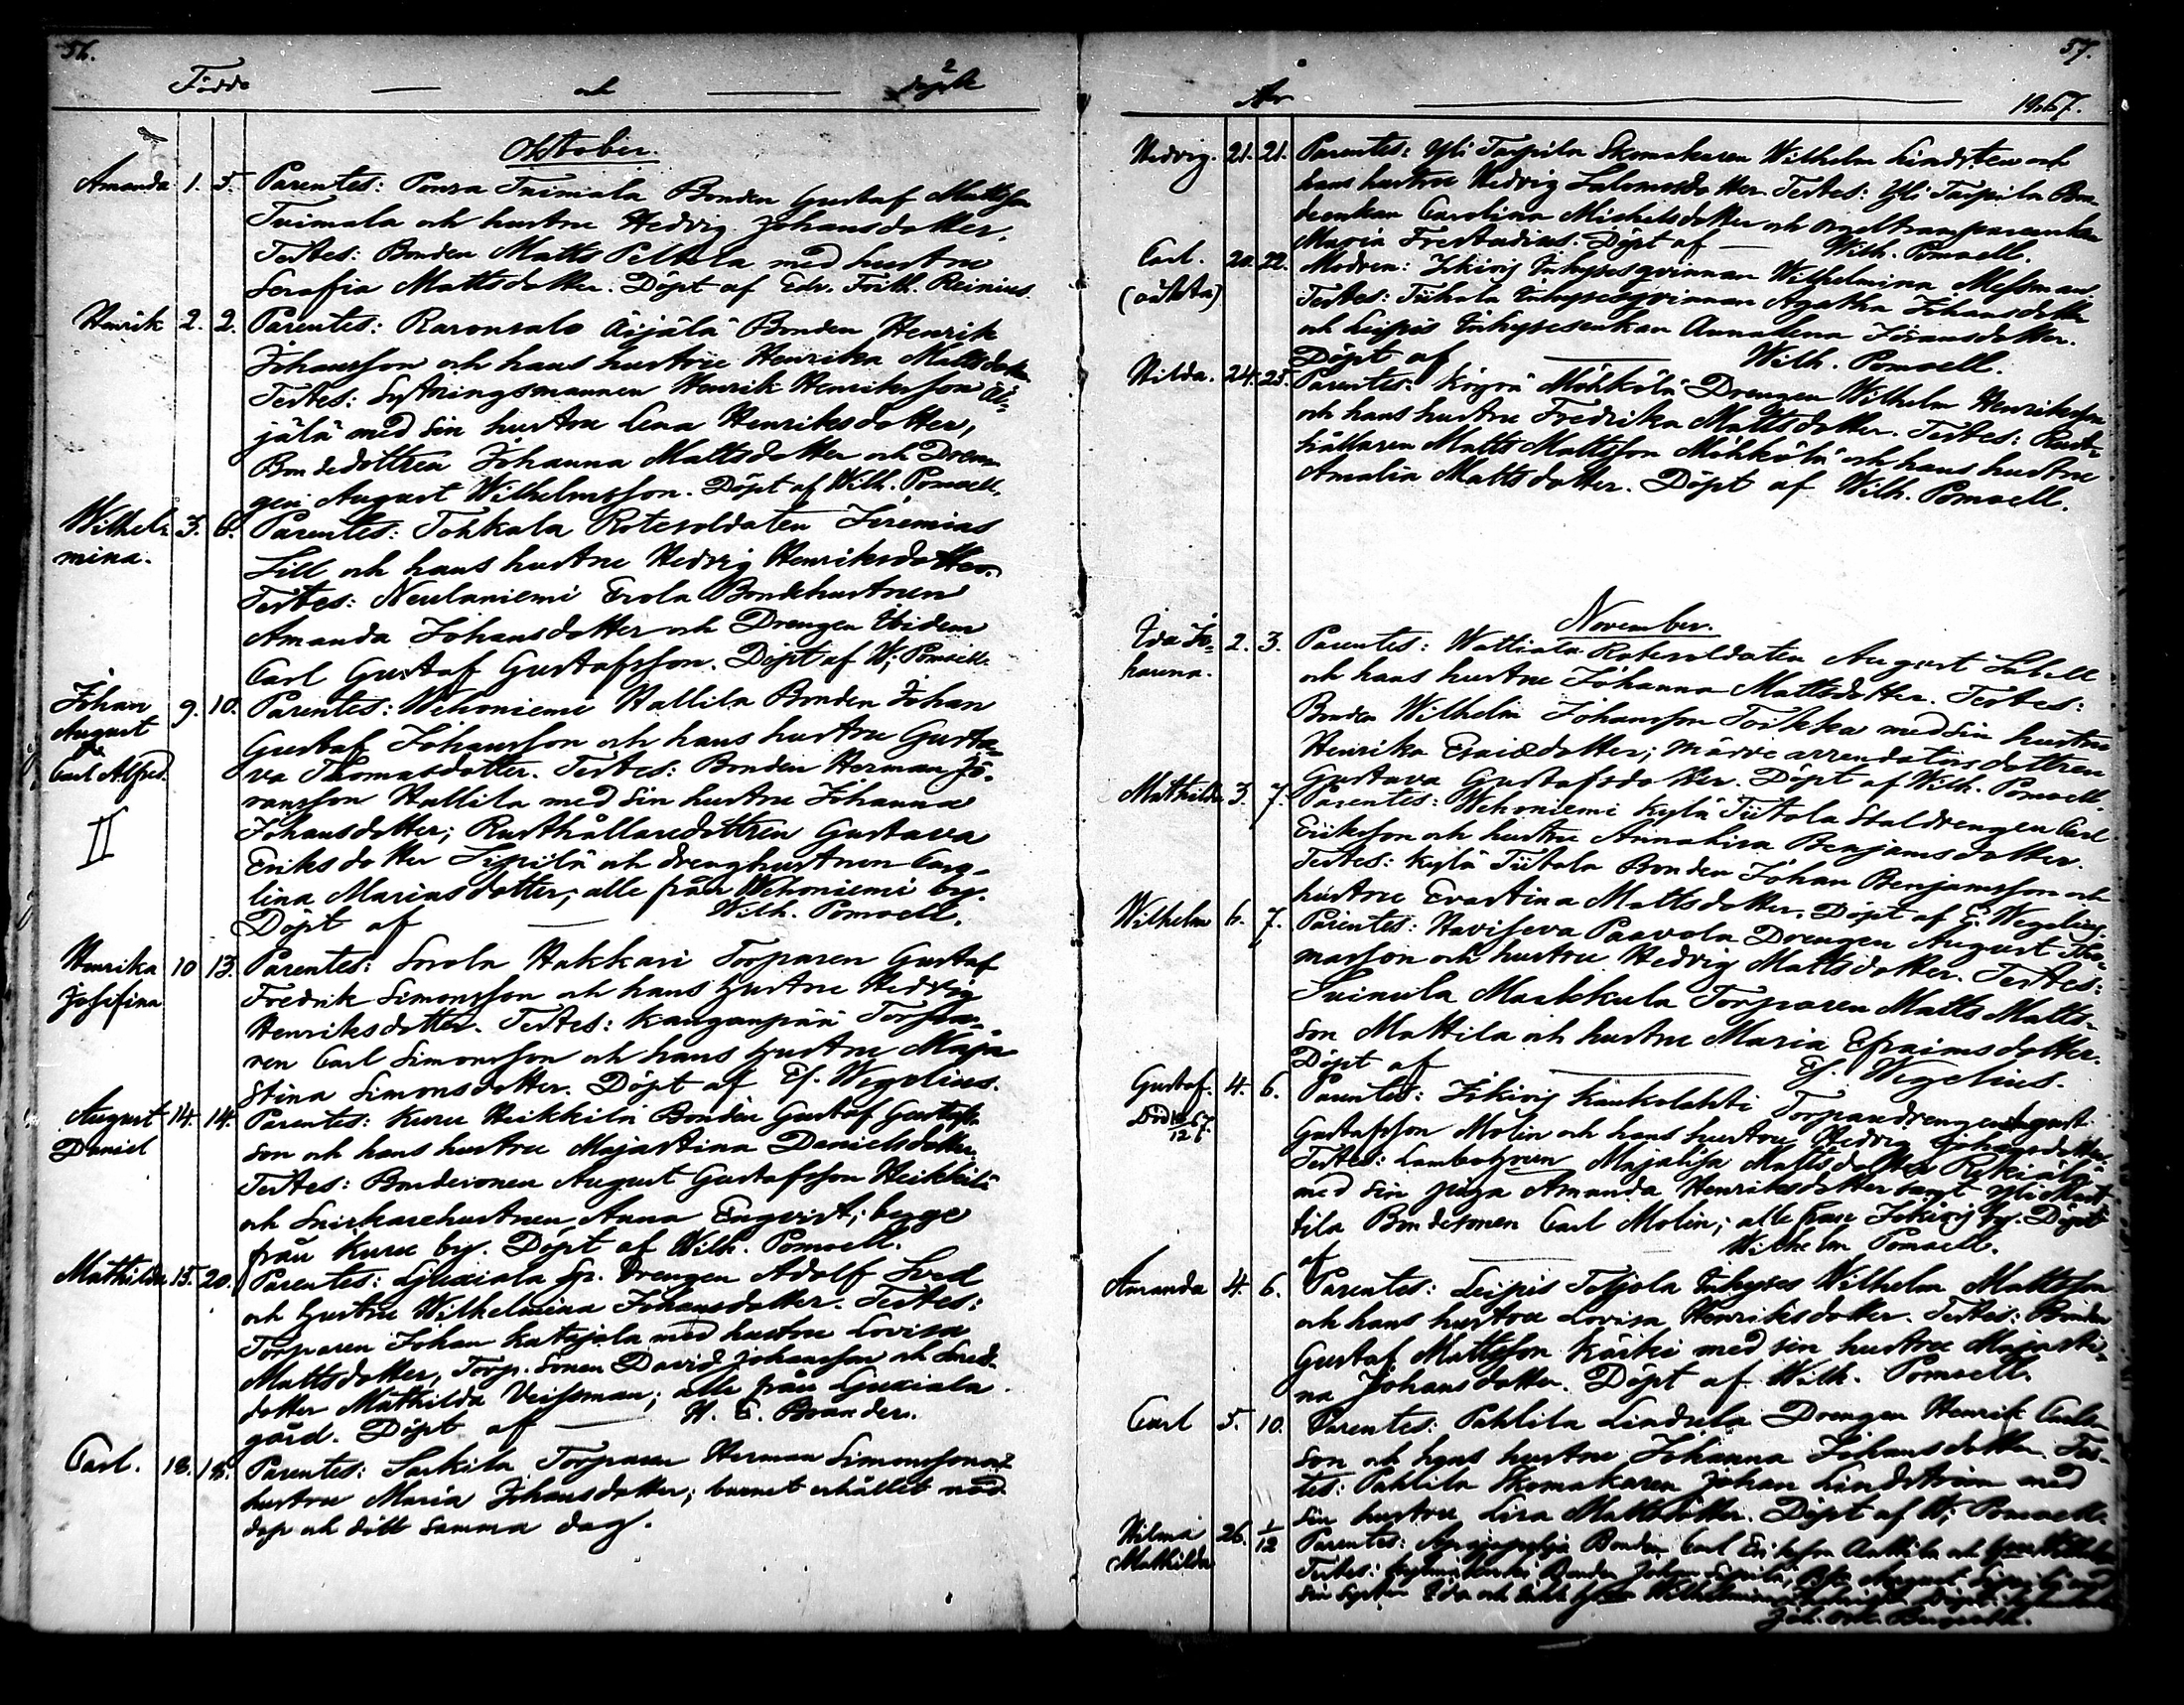 56.
Födde — och — döpte
Oktober.
Amanda 1. 5. Parentes: Ponsa Tuimala Bonden Gustaf Mattsson
Tuimala och hustru Hedvig Johansdotter.
Testes: Bonden Matts Peltola med hustru
Serafia Mattsdotter. Döpt af Edv. Frith. Reinius.
Henrik 2. 2. Parentes: Raronsalo Äijälä Bonden Henrik
Johansson och hans hustru Henrika Mattsdotter
Testes: Sytningsmannen Henrik Henriksson Äi-
jälä med sin hustru Lena Henriksdotter,
Bondedottren Johanna Mattsdotter och Dren-
gen August Wilhelmsson. Döpt af Wilh. Pomoell.
Wilhel- 3. 6. Parentes: Tohkala Rotesoldaten Jeremias
mina. Lill och hans hustru Hedvig Henriksdotter
Testes: Neulaniemi Erola Bondehustrun
Amanda Johansdotter och Drengen Ibidem
Carl Gustaf Gustafsson. Döpt af W. Pomoell.
Johan 9. 10. Parentes: Wehoniemi Hallila Bonden Johan
August Gustaf Johansson och hans hustru Gusta-
Carl Alfred. va Thomasdotter. Testes: Bonden Herman Jö-
ransson Hallila med sin hustru Johanna
II Johansdotter; Rusthållaredottren Gustava
Eriksdotter Sipilä och drenghustrun Caro-
lina Mariasdotter; alle från Wehoniemi by.
Döpt af — Wilh. Pomoell.
Henrika 10 13. Parentes: Sorola Hakkari Torparen Gustaf
Josefina Fredrik Simonsson och hans hustru Hedvig
Henriksdotter. Testes: Kanganpää Torpa-
ren Carl Simonsson och hans hustru Maja
Stina Simonsdotter. Döpt af Ef. Wegelius.
August 14. 14. Parentes: Kuru Heikkilä Bonden Gustaf Gustafs-
Daniel son och hans hustru Majastina Danielsdotter
Testes: Bondesonen August Gustafsson Heikkilä
och Snickarehustrun Anna Enqvist; begge
från Kuru by. Döpt af Wilh. Pomoell.
Mathilda 15. 20. Parentes: Ljuxiala Sp. Drengen Adolf Sved
och hustru Wilhelmina Johansdotter. Testes:
Torparen Johan Katajala med hustru Lovisa
Mattsdotter, Torp. sonen David Johansson och Smeds-
dotter Mathilda Veissman; alle från Ljuxiala
gård. Döpt af — H. E. Brander.
Carl. 18. 18. Parentes: Sarkila Torparen Herman Simonsson och
hustru Maria Johansdotter; barnet erhållit nöd-
dop och dött samma dag.
57.
År — 1867.
Hedvig. 21. 21. Parentes: Yli Tarpila Skomakaren Wilhelm Lindsten och
hans hustru Hedvig Salomosdotter. Testes: Yli Tarpila Bon-
deenkan Carolina Michelsdotter och orgeltramparenkan
Maria Frestadius. Döpt af — Wilh. Pomoell.
Carl. 20. 22. Modren: Jokioij Inhysesqvinnan Wilhelmina Messman.
(oäkta) Testes: Tiihala Inhysesqvinnan Agatha Johansdotter
och Leipis Inhysesenkan Annalena Jöransdotter.
Döpt af — Wilh. Pomoell.
Hilda. 24. 25. Parentes: Köyrä Möhkölä Drengen Wilhelm Henriksson
och hans hustru Fredrika Mattsdotter. Testes: Rust-
hållaren Matts Mattsson Möhkölä och hans hustru
Amalia Mattsdotter. Döpt af Wilh. Pomoell.
November.
Ida Jo- 2. 3. Parentes: Wattiala Rotesoldaten August Sabell
hanna. och hans hustru Johanna Mattsdotter. Testes:
Bonden Wilhelm Johansson Torkka med sin hustru
Henrika Esaiædotter; arrendatorsdottren
Gustava Gustafsdotter. Döpt af Wilh. Pomoell.
Mathilda 3. 7. Parentes: Wehoniemi Kylä Tiitola Staldrengen Carl
Eriksson och hustru Annalisa Benjamsdotter.
Testes: Kylä Tiitola Bonden Johan Benjamsson och
hustru Evastina Mattsdotter. Döpt af E. Wegelius.
Wilhelm 6. 7. Parentes: Haviseva Paavola Drengen August Tho-
masson och hustru Hedvig Mattsdotter. Testes:
Suinula Markkula Torparen Matts Matts-
son Mattila och hustru Maria Efraimsdotter.
Döpt af — Ef. Wegelius.
Gustaf. 4. 6. Parentes: Jokioij Kaukolahti Torparedrengen August
Gustafsson Molin och hans hustru Hedvig Johansdotter.
Testes: Majalisa Mattsdotter
med sin piga Amanda Henriksdotter samt Yli Mart-
tila Bondesonen Carl Molin; alle från Jokioij by. Döpt
af — Wilhelm Pomoell.
Amanda 4. 6. Parentes: Leipis Toljola Inhyses Wilhelm Mattsson
och hans hustru Lovisa Henriksdotter. Testes: Bonden
Gustaf Mattsson Kärki med sin hustru Majasti-
na Johansdotter. Döpt af Wilh. Pomoell.
Carl 5. 10. Parentes: Pahlila Lindula Drengen Henrik Carls-
son och hans hustru Johanna Johansdotter. Tes-
tes: Pahlila Skomakaren Johan Lindström med
sin hustru Lisa Mattsdotter. Döpt af W. Pomoell.
Hilma 26. 1/12 Parentes: Bonden Carl Eriksson Anttila och
Mathilda Testes: Bonden Johan August
sin syster Ida och Wilhelmina Döpt
Joh.